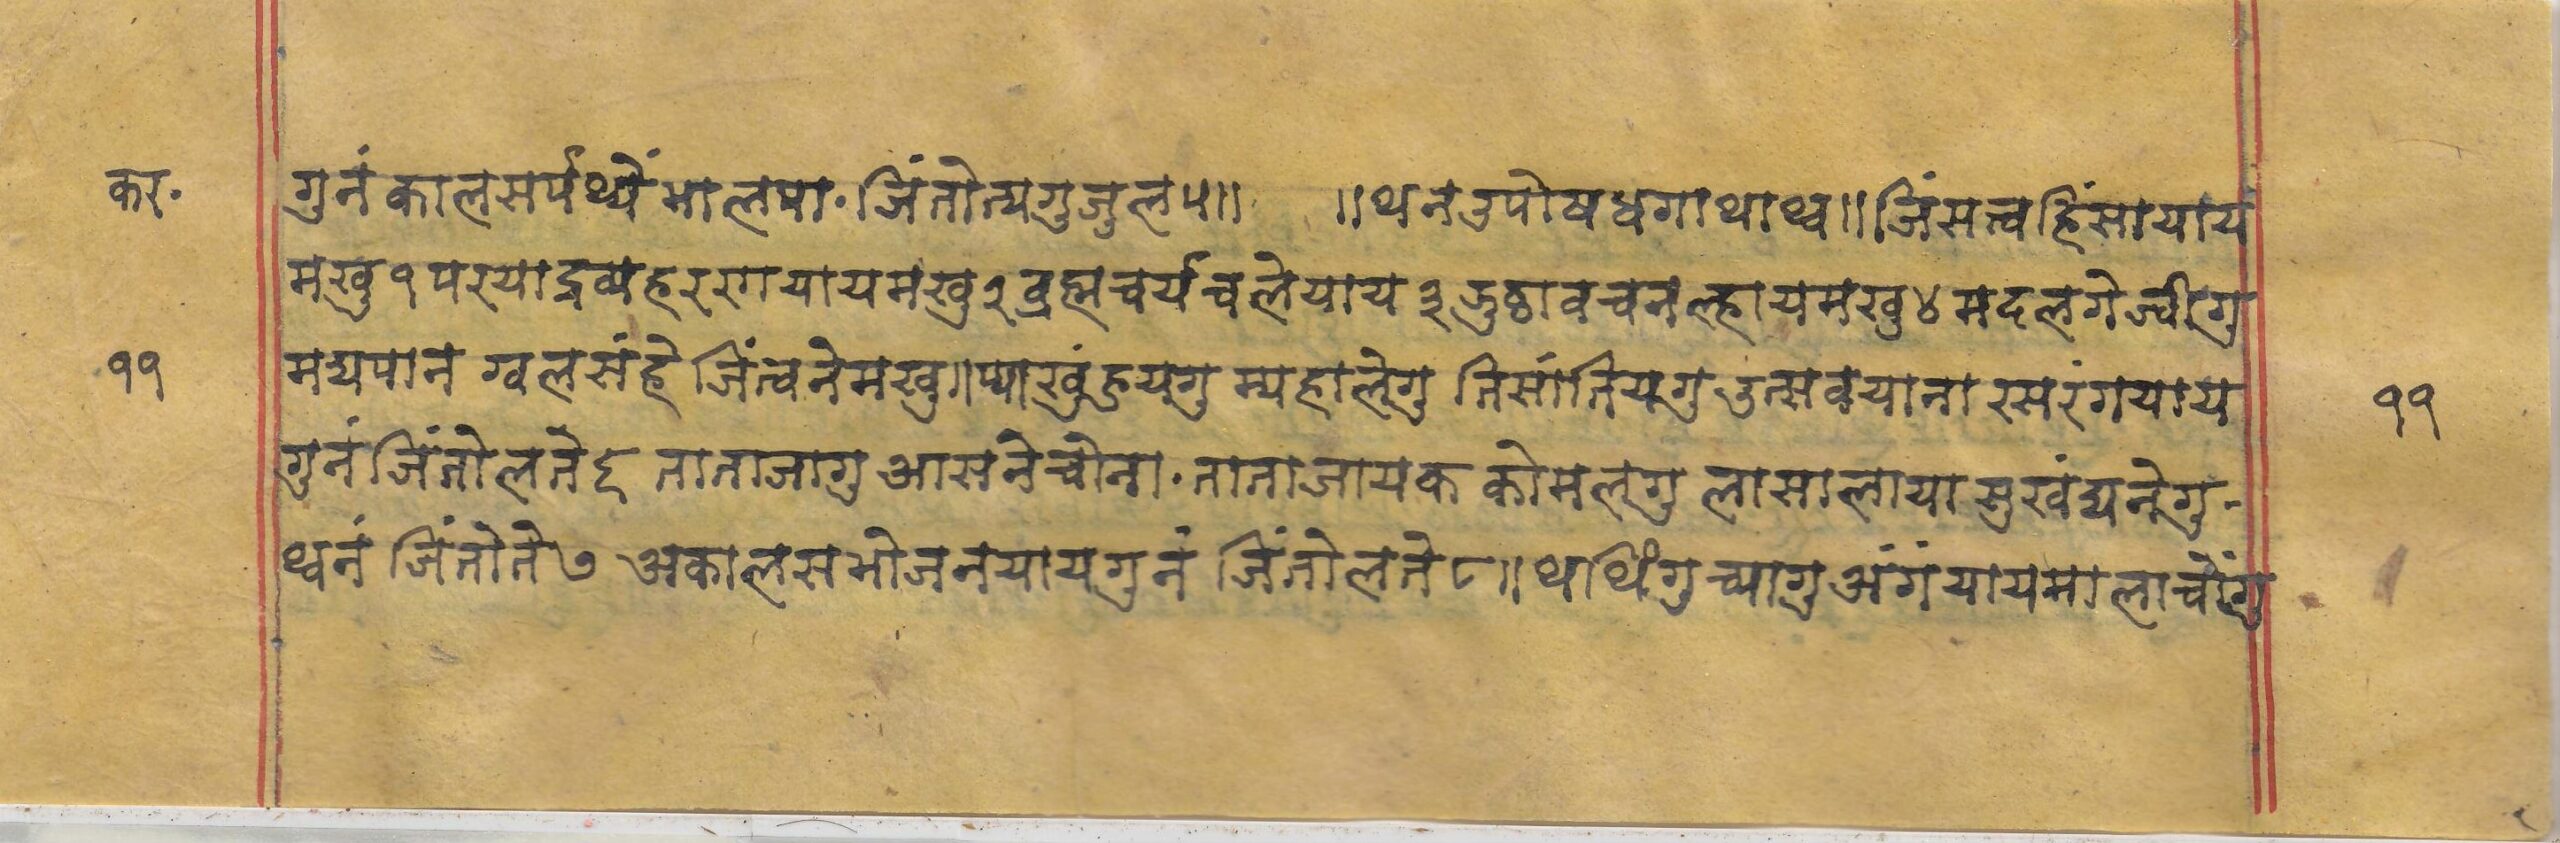 कर.
गुनं कालसर्पथ्येंभालपा. जिंतोत्यगुजुल५॥ ॥थनउपोषधगाथाथ्व॥ जिंसत्वहिंसायाय
मखु१परयाद्रव्यहररगयायमखु२व्रह्मचर्यचलेयाय३झुठावचनल्हायमखु४मदलगेज्वीगु
११ मद्यपान ग्वलसंहे जिंत्वनेमखु॥प्याखुंहुयगु म्यहालेगु तिसांतियगु उत्सवयाना रसरंगयाय ११
गुनं जिंतोलते६ ताताजागु आसनेचोना. ताताजायक कोमलगु लासालाया सुखंद्यनेगु-
थ्वनं जिंतोते७ अकालसभोजनयायगुनं जिंतोलते८॥थथिंगुच्यागुअंगंयायमालाचोंगु